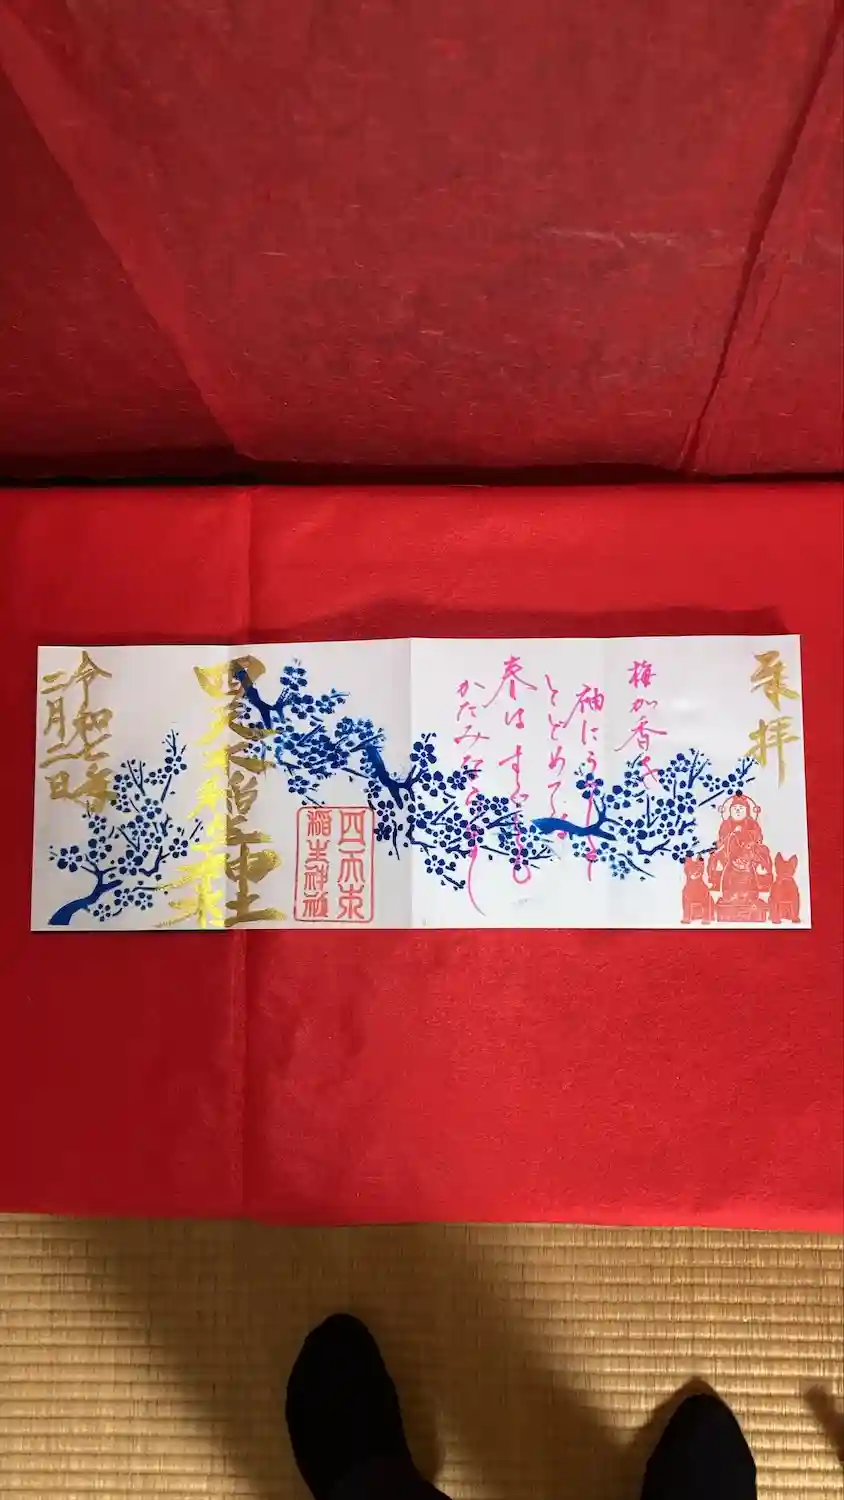 奉拝
梅加香を
袖にうつして
とどめてば
春はすぐとも
かたみならまし
四天木
稲生神社
四天木稲生神社
令和七年
二月二日